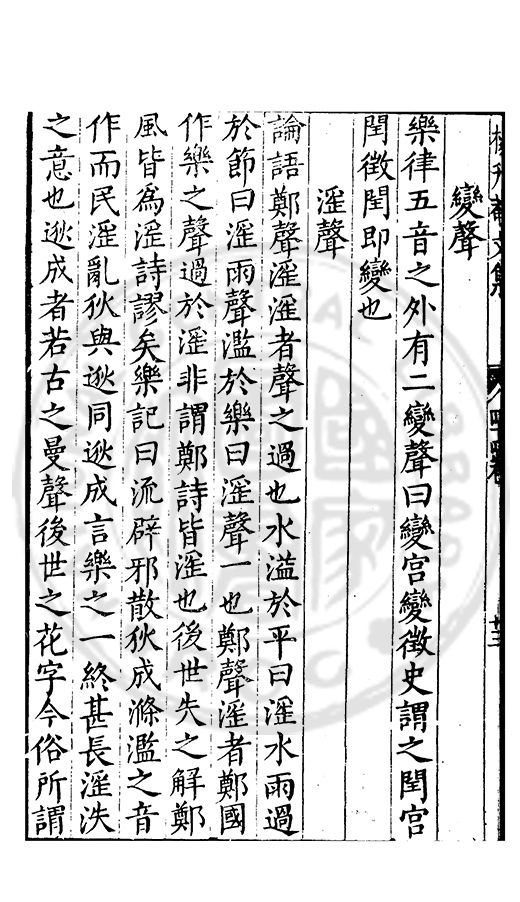 升菴文集
變聲
樂律五音之外有二變聲曰變宮變徵史謂之閏宮
閏徵閏即變也
滛聲
論語鄭聲滛滛者聲之過也水溢於平曰滛水雨過
於節曰滛雨聲濫於樂曰滛聲一也鄭聲滛者鄭國
作樂之聲過於滛非謂鄭詩皆滛也後世失之解鄭
風皆為滛詩謬矣樂記曰流辟邪散狄成滌濫之音
作而民滛亂狄與逖同逖成言樂之一終甚長滛泆
之意也逖成者若古之曼聲後世之花字今俗所謂